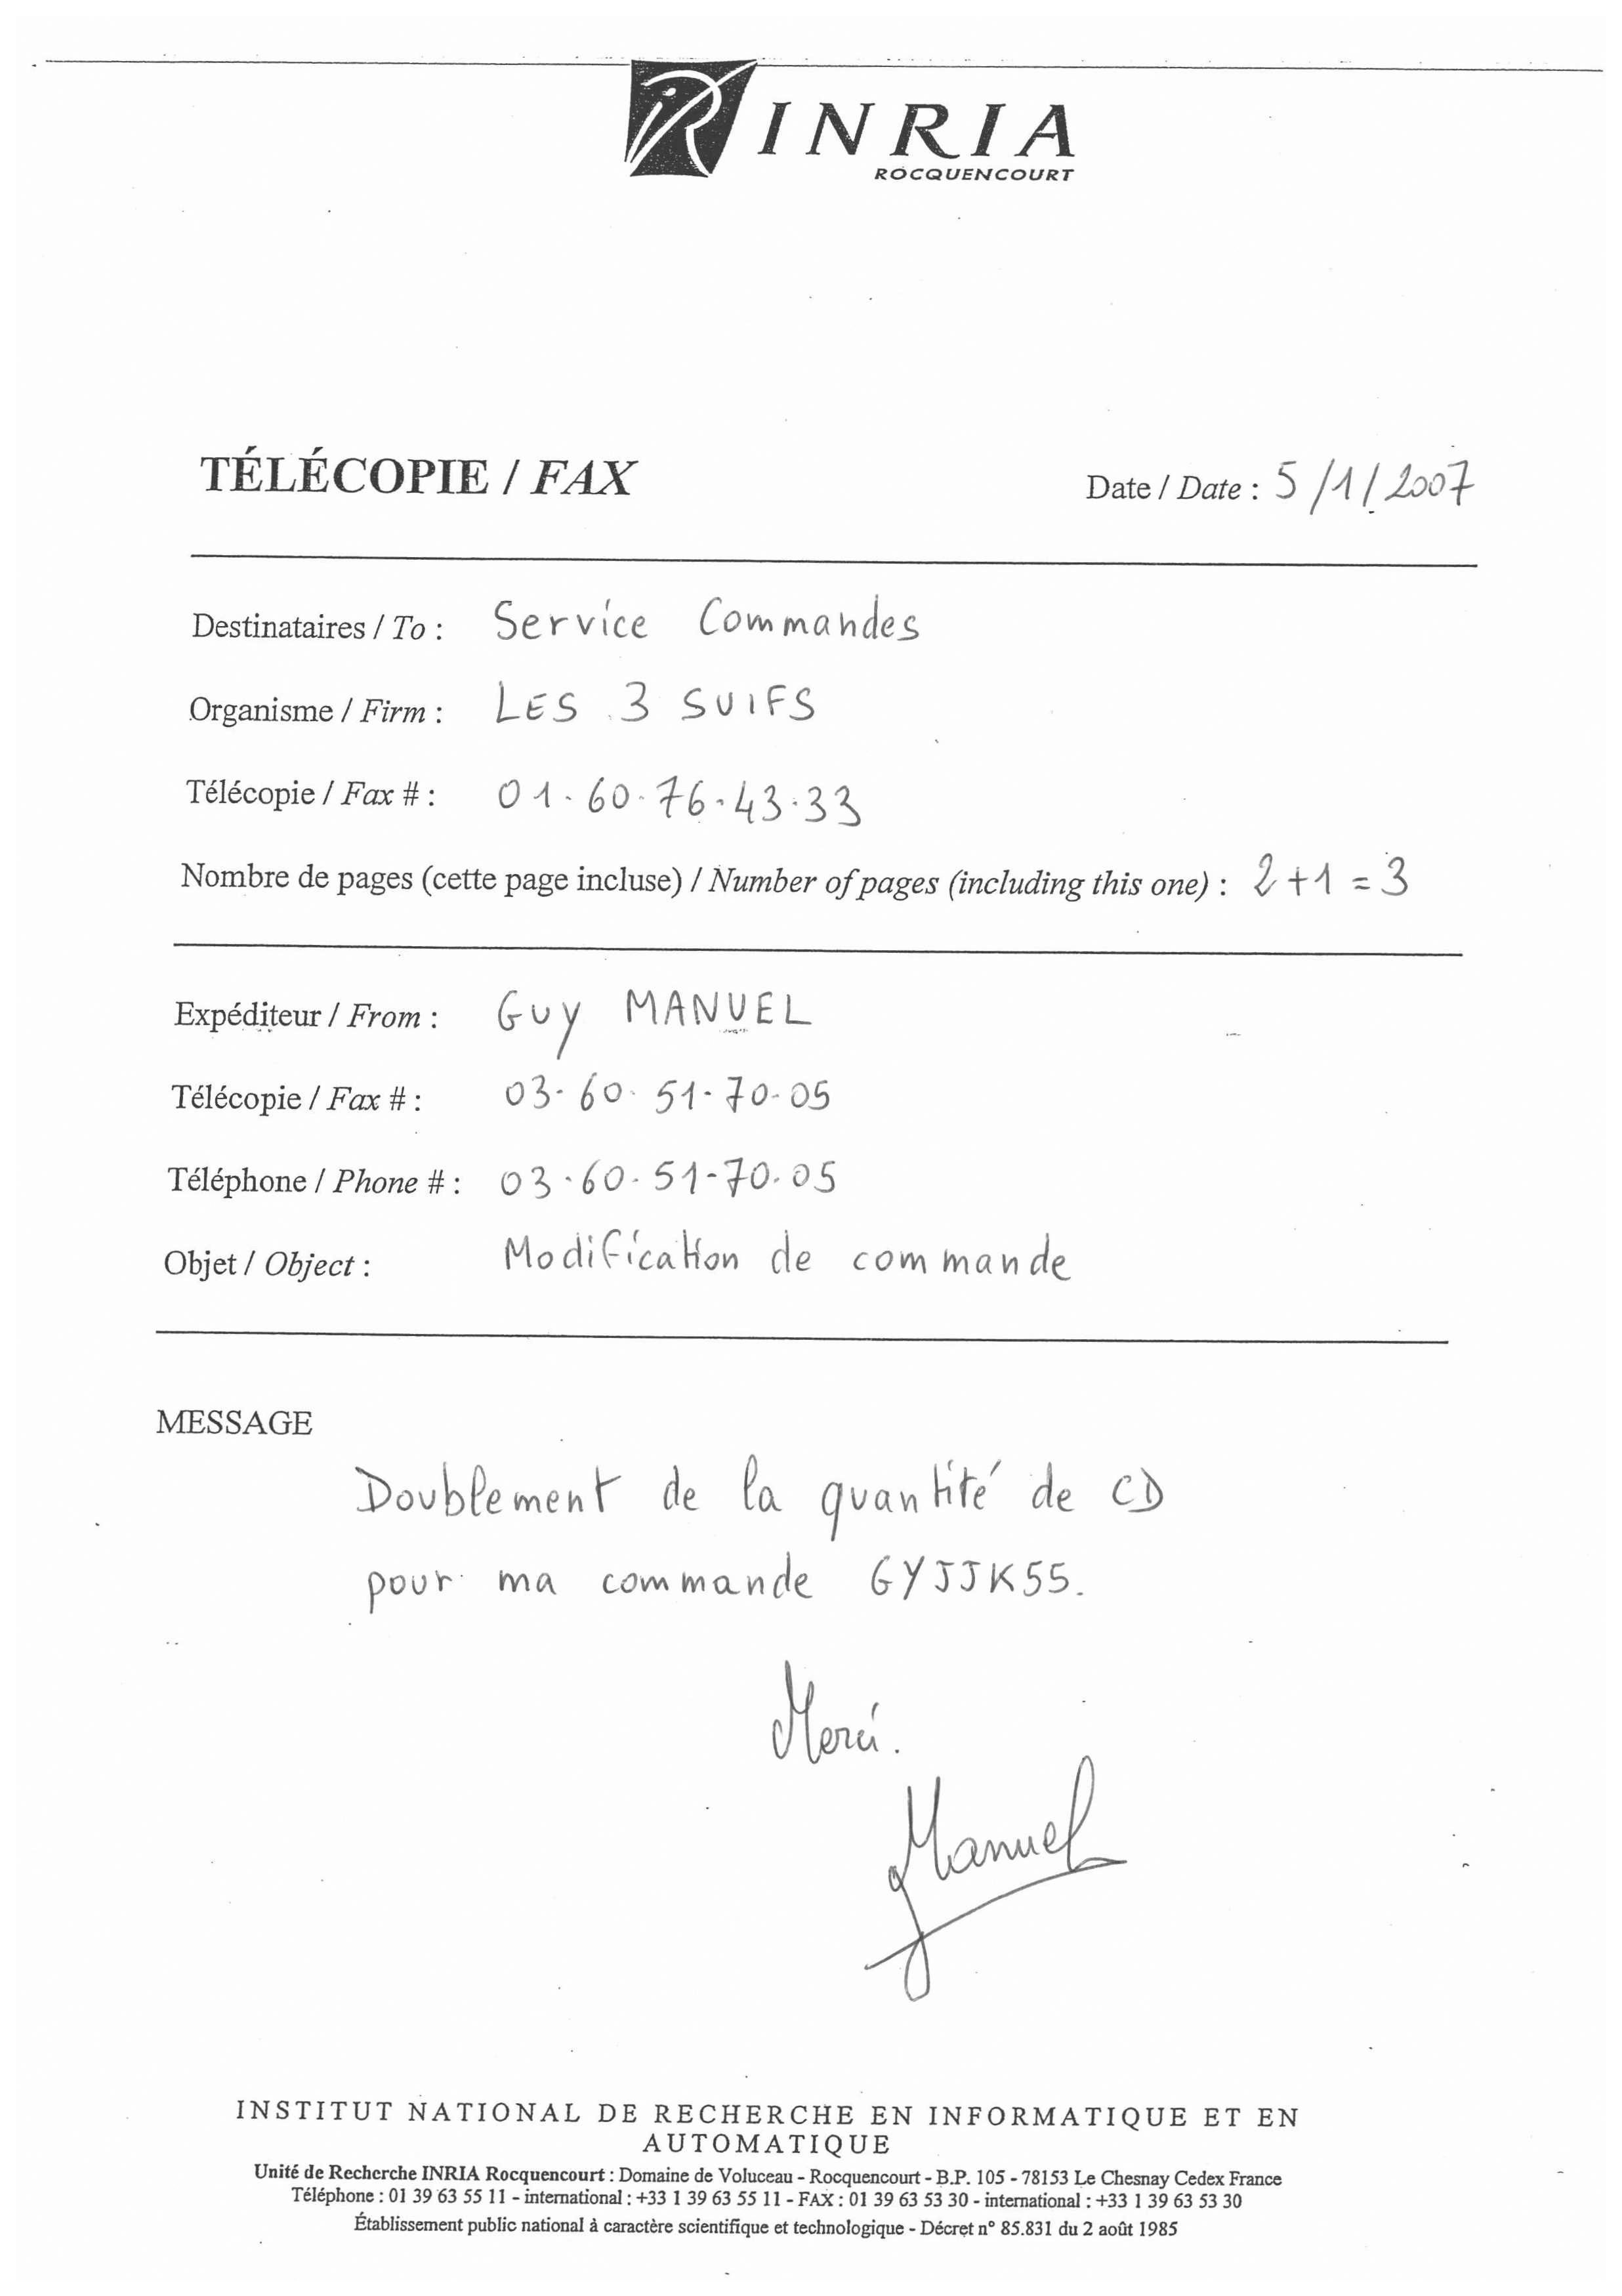 INRIA
ROCQUENCOURT
TÉLÉCOPIE / FAX
Date / Date : 5/1/2007
Destinataires / To : Service Commandes
Organisme / Firm : LES 3 SUIFS
Télécopie / Fax # : 01.60.76.43.33
Nombre de pages (cette page incluse) / Number of pages (including this one) : 2+1=3
Expéditeur / From : Guy MANUEL
Télécopie / Fax # : 03.60.51.70.05
Téléphone / Phone # : 03.60.51.70.05
Objet / Object : Modification de commande
MESSAGE
Doublement de la quantité de CD
pour ma commande GYJJK55.
Merci.
Manuel
INSTITUT NATIONAL DE RECHERCHE EN INFORMATIQUE ET EN
AUTOMATIQUE
Unité de Recherche INRIA Rocquencourt : Domaine de Voluceau - Rocquencourt - B.P. 105 - 78153 Le Chesnay Cedex France
Téléphone : 01 39 63 55 11 - international : +33 1 39 63 55 11 - FAX : 01 39 63 53 30 - international : +33 1 39 63 53 30
Établissement public national à caractère scientifique et technologique - Décret n° 85.831 du 2 août 1985